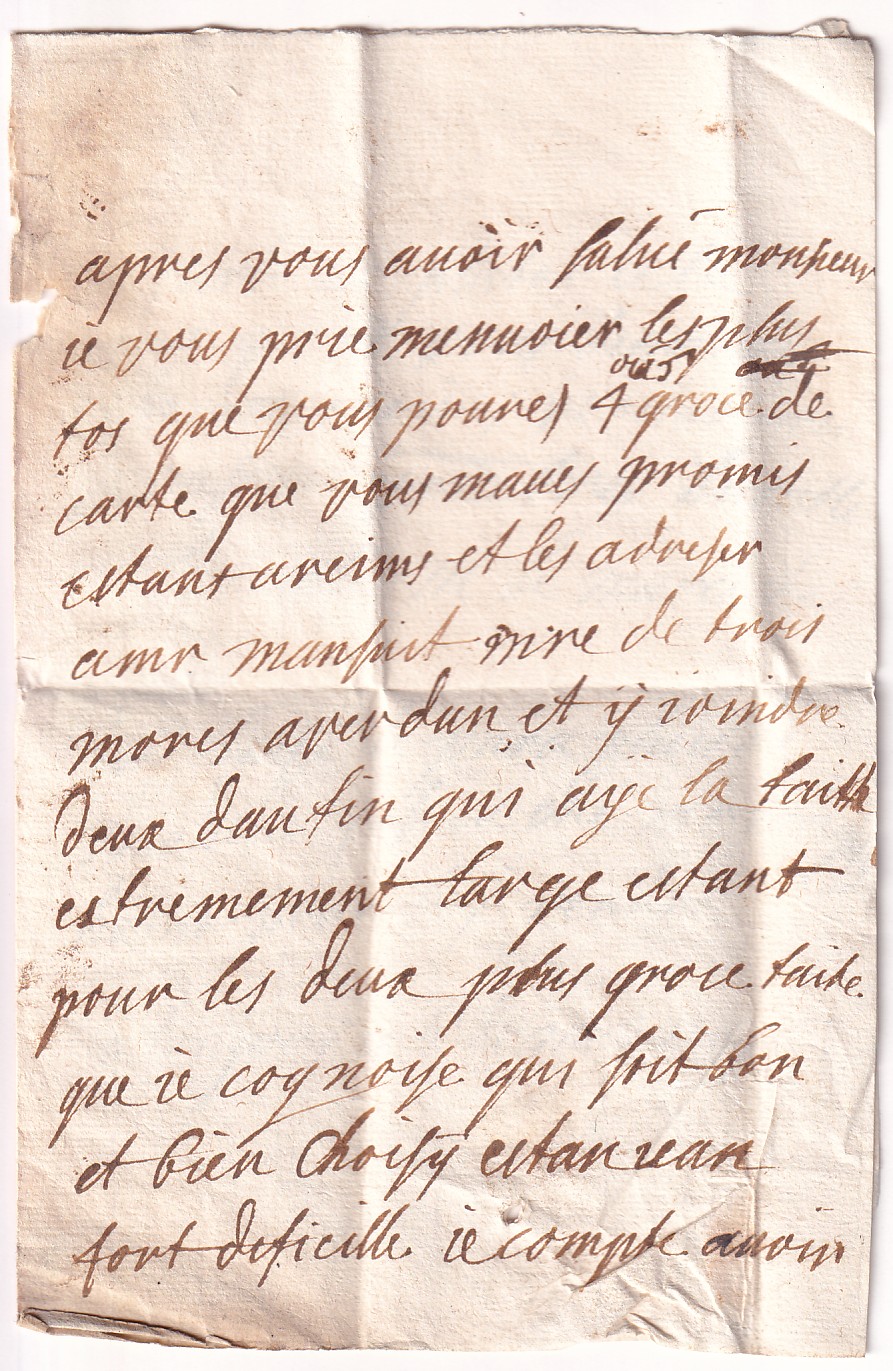 apres vous auoir salué monsieur
ie vous prie menuoier les plus
ou 5
tos que vous poures 4 groce de
carte que vous maues promis
estant areims et les adreser
amr mansuit mre de trois
mores averdun et ÿ ioindre
deux daufin qui aÿe la taite
estremement large estant
pour les deux plus groce taite
que ie cognoise qui soit bon
et bien choisy estan
fort deficille ie compte auoir